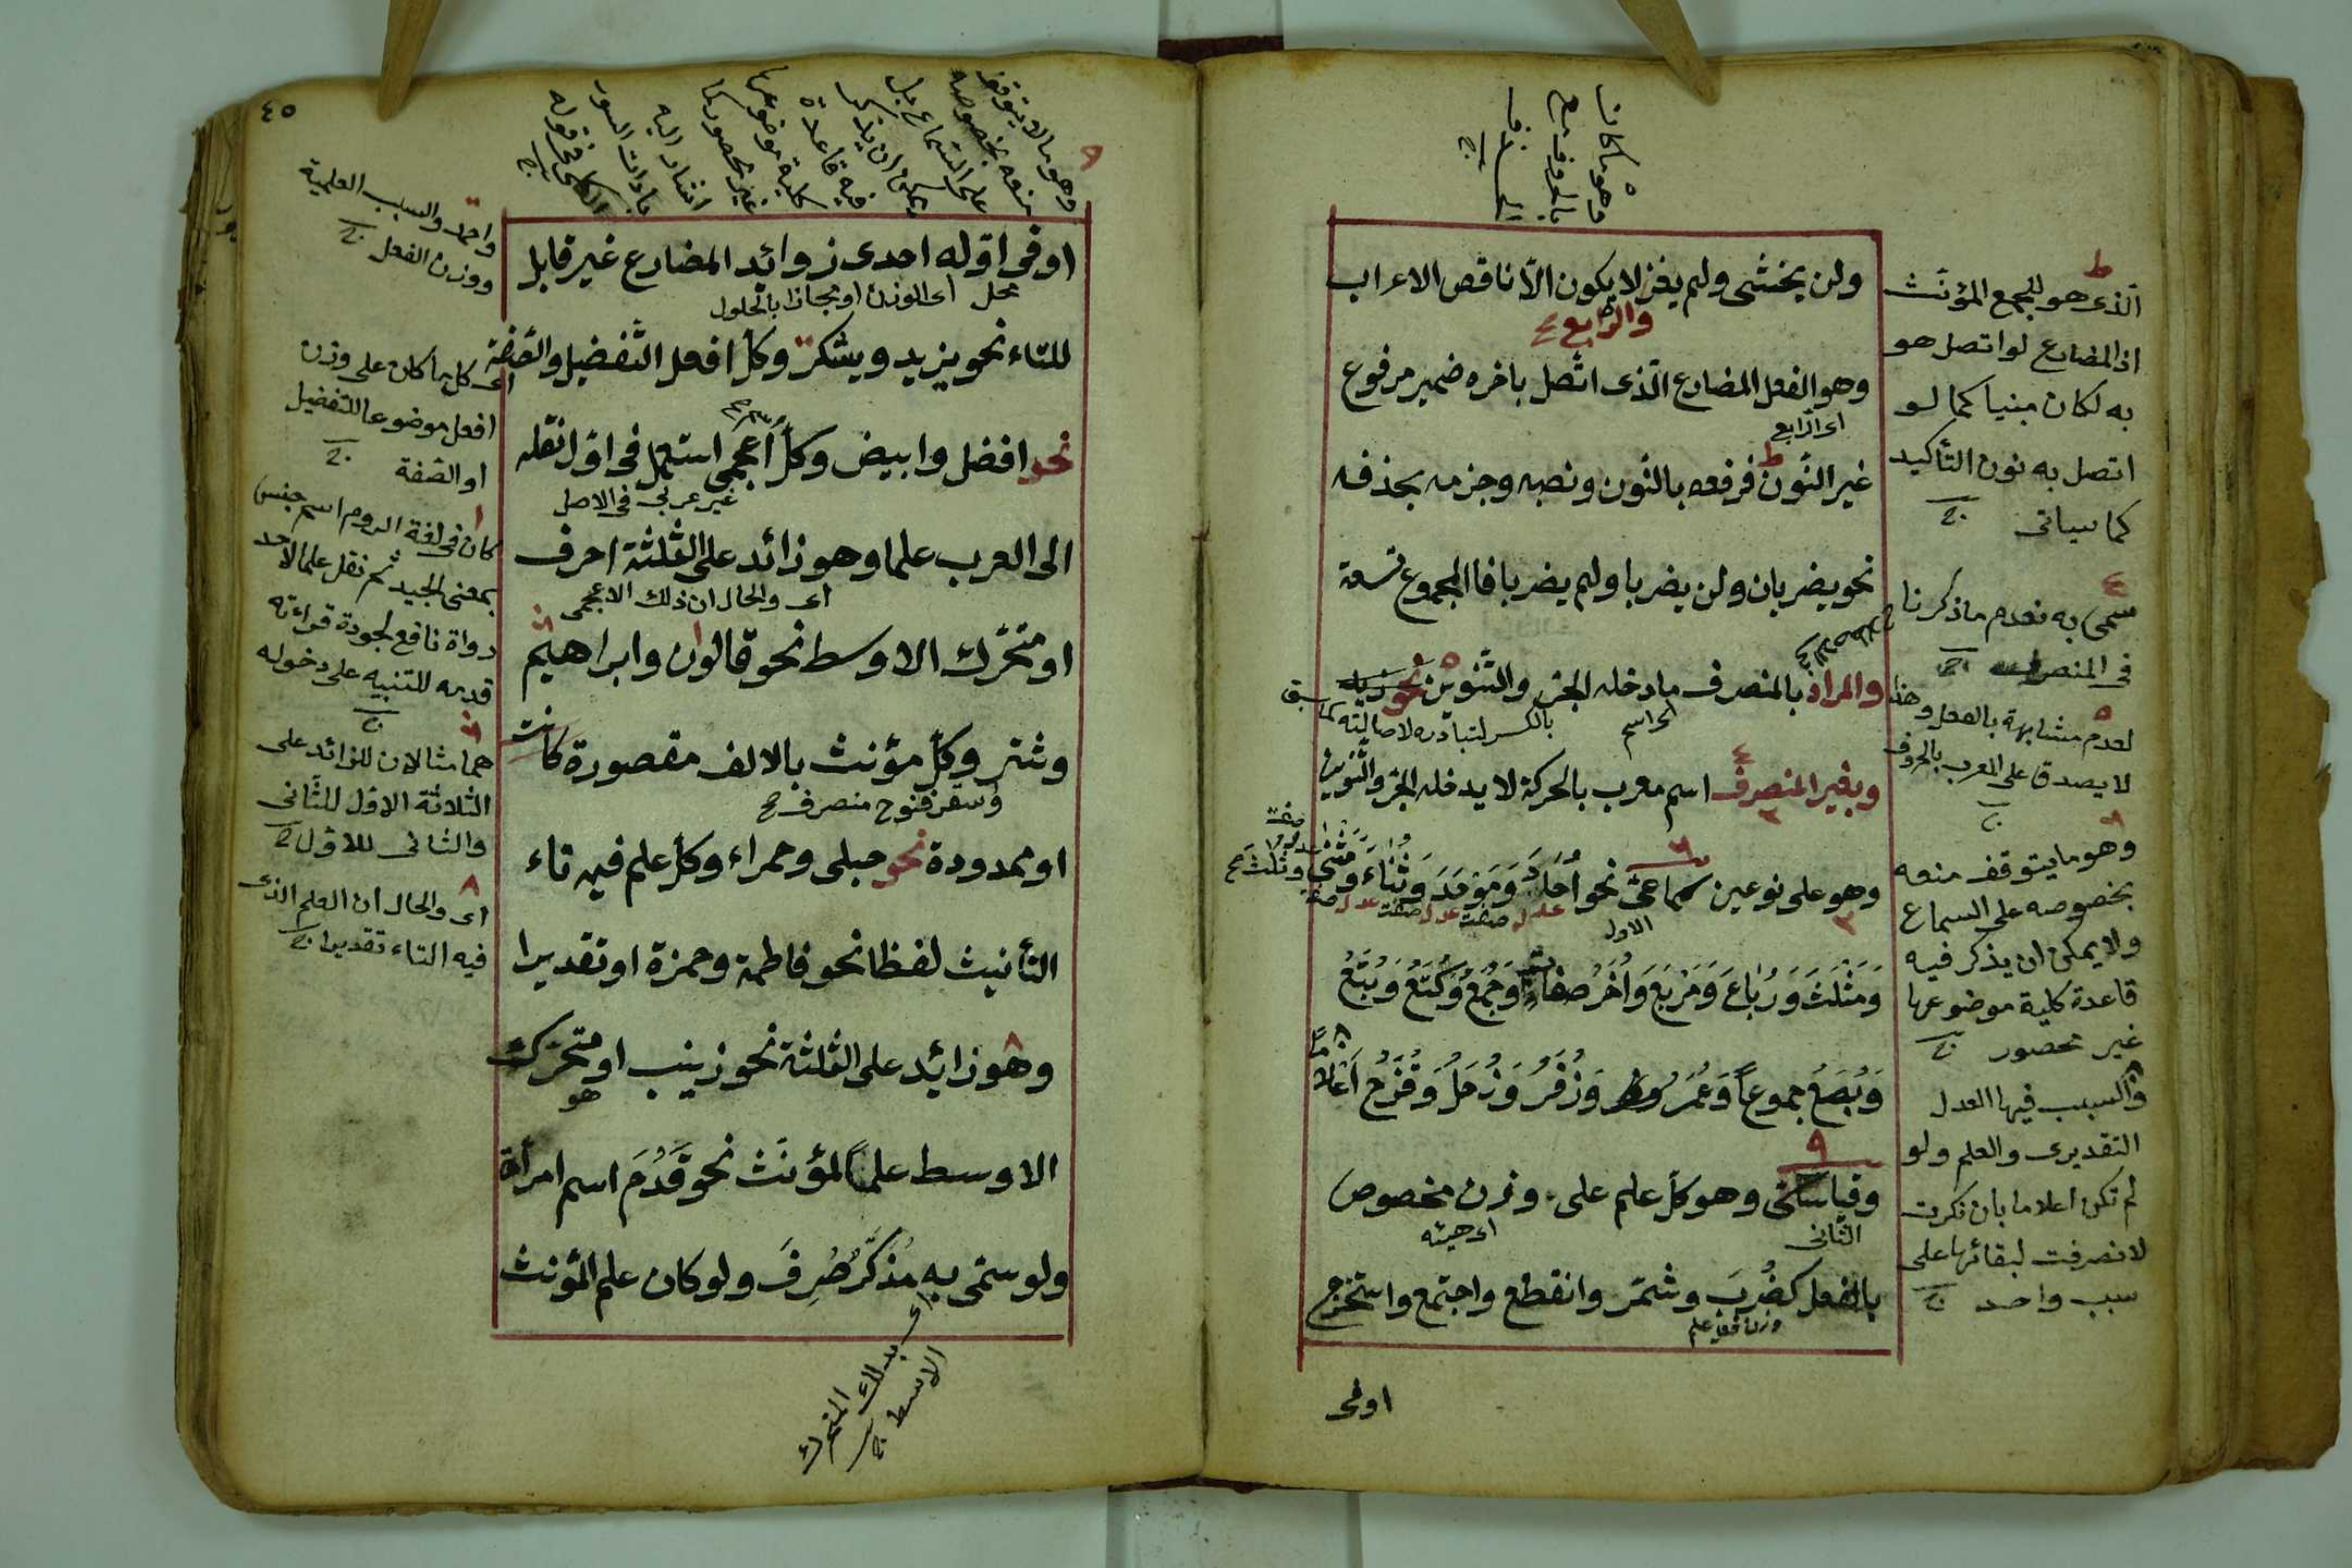 ولن يخشى ولم يغز لا يكون الا ناقص الاعراب
والرابع
وهو الفعل المضارع الذى اتصل باخره ضمير مرفوع
اى الرابع
غير النون فرفعه بالنون ونصبه وجزمه بحذفه
نحو يضربان ولن يضربا ولم يضربا فالمجموع تسعة
والمراد بالمنصرف ما دخله الجر والتنوين نحو زيد
اى اسم
بالكسر لتبادره لاصالته كما سبق
وبغير المنصرف اسم معرب بالحركة لا يدخله الجر والتنوين
وهو على نوعين سماعى نحو أُحَادَ وَمَوْحَدَ وَثُنَاءَ وَمَثْنَى وثلث
الاول
وَمَثْلَثَ وَرُبَاعَ وَمَرْبَعَ وَأُخَرُ صفات وَجُمَعُ وَكُتَعُ وَبُتَعُ
وَبُصَعُ جموعاً وَعُمَرُ وَزُفَرُ وَزُحَلُ وَقُزَحُ اعلاماً
وقياسى وهو كل علم على وزن مخصوص
الثانى
اى هيئه
بالفعل كضُرِبَ وشمّر وانقطع واجتمع واستخرج
اوفى
وهو ما كان
الذى هو الجمع المؤنث
اذ المضارع لو اتصل هو
به لكان مبنيا كما لو
اتصل به نون التأكيد
كما سياتى
سمى به لعدم ما ذكرنا
فى المنصرف
لعدم مشابهة بالفعل وهذا
لا يصدق على المعرب بالحروف
وهو ما يتوقف منعه
بخصوصه على السماع
ولا يمكن ان يذكر فيه
قاعدة كلية موضوعها
غير محصور
والسبب فيها العدل
التقديرى والعلم ولو
لم تكن اعلاما بان نكرت
لانصرفت لبقائها على
سبب واحد
٤٥
وهو ما لا يتوقف
منعه بخصوصه
على السماع بل
يمكن ان يذكر
فيه قاعدة
كلية موضوعها
غير محصور كما
اشار اليه
الكلى فى قوله
او فى اوله احدى زوائد المضارع غير قابل
محل اى الوزن او مجازا بالحلول
للتاء نحو يزيد ويشكر وكل افعل التفضيل والصفة
نحو افضل وابيض وكل اعجمى استعمل فى اول نقله
غير عربى فى الاصل
الى العرب علما وهو زائد على الثلثة احرف
اى والحال ان ذلك الاعجمى
او متحرك الاوسط نحو قالون وابراهيم
وشتر وكل مؤنث بالالف مقصورة كانت
او ممدودة نحو حبلى وحمراء وكل علم فيه تاء
التأنيث لفظا نحو فاطمة وحمزة او تقديرا
وهو زائد على الثلثة نحو زينب او متحرك
هو
الاوسط علماً لمؤنث نحو قَدَمَ اسم امرأة
ولو سمى به مُذَكَّرٌ صُرِفَ ولو كان علم المؤنث
بذلك المتحرك
الاوسط
والسبب العلمية
ووزن الفعل
اى كل ما كان على وزن
افعل موضوعا للتفضيل
او الصفة
كان فى لغة الروم اسم جنس
بمعنى الجيد ثم نقل علما لاحد
رواة نافع لجودة قراءته
قدمه للتنبيه على دخوله
هما مثالان للزائد على
الثلاثة الاول للثانى
والثانى للاول
اى والحال ان العلم الذى
فيه التاء تقديرا